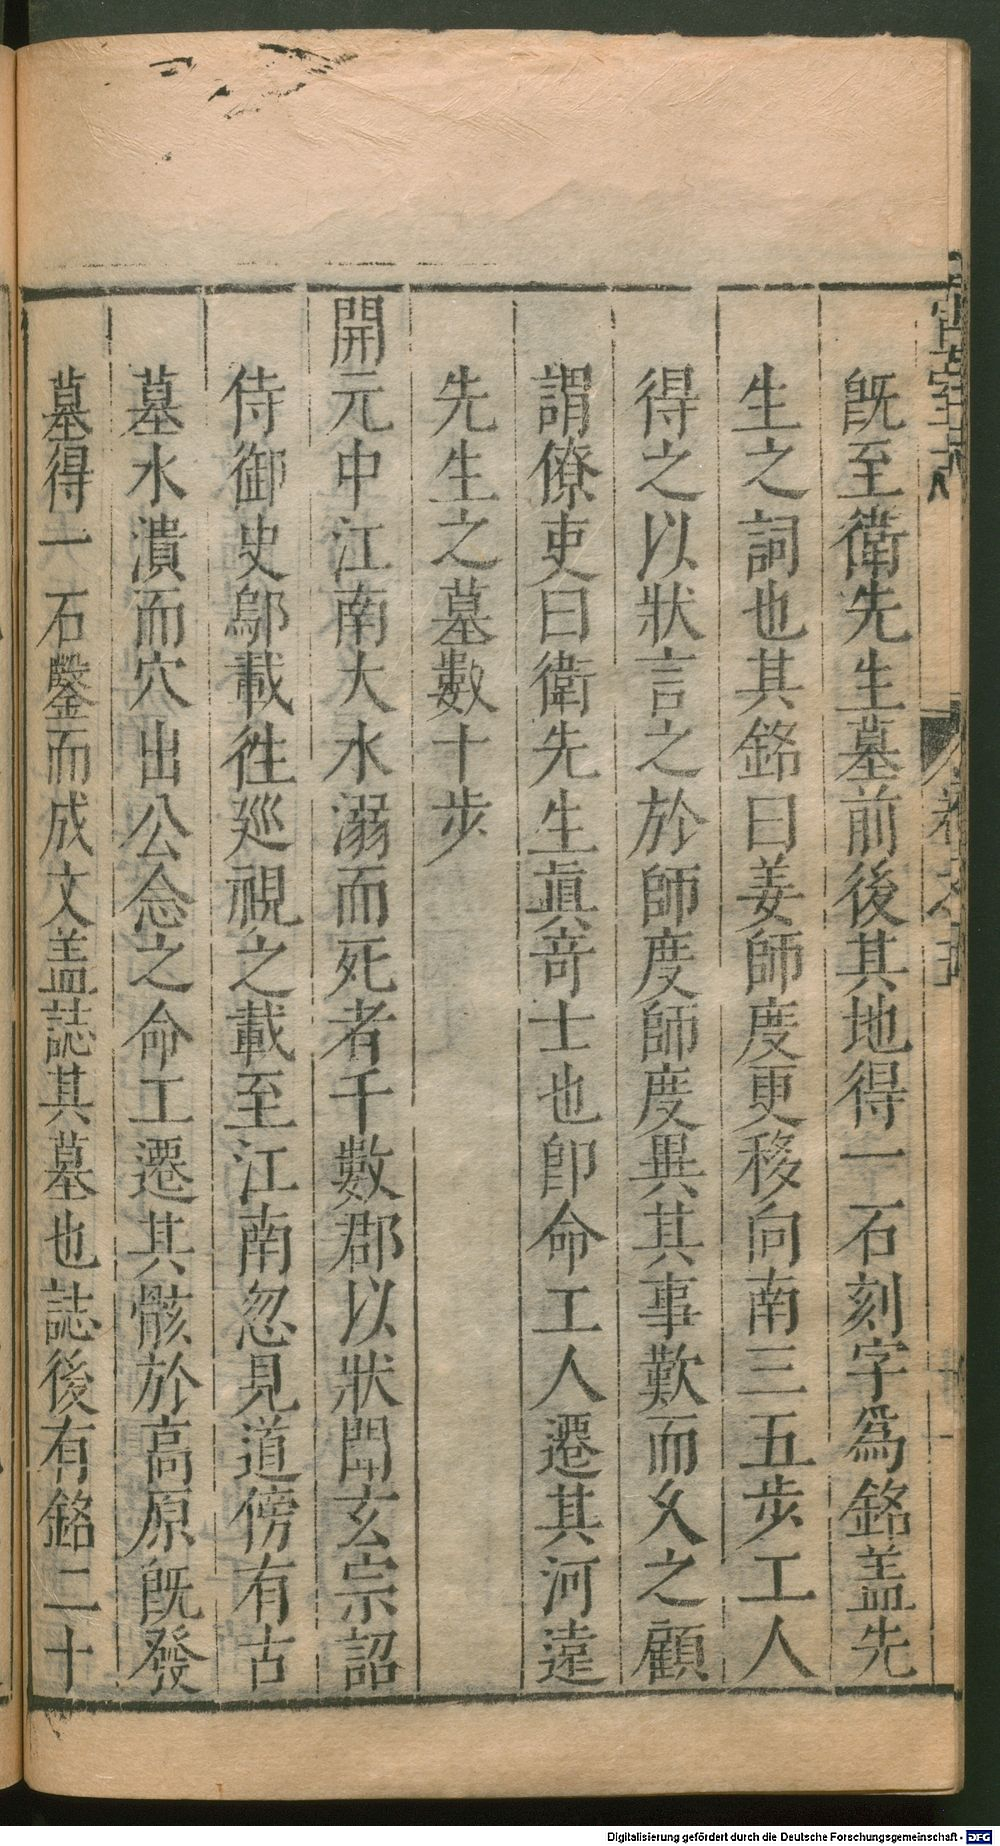 既至衛先生墓前後其地得一石刻字爲銘盖先
生之詞也其銘曰姜師度更移向南三五步工人
得之以狀言之於師度師度異其事歎而久之顧
謂僚吏曰衛先生眞竒士也卽命工人遷其河遠
先生之墓數十步
開元中江南大水溺而死者千數郡以狀聞玄宗詔
侍御史鄔載徃廵視之載至江南忽見道傍有古
墓水潰而穴出公念之命工遷其骸於高原旣發
墓得一石鑿而成文盖誌其墓也誌後有銘二十
Digitalisierung gefördert durch die Deutsche Forschungsgemeinschaft - DFG